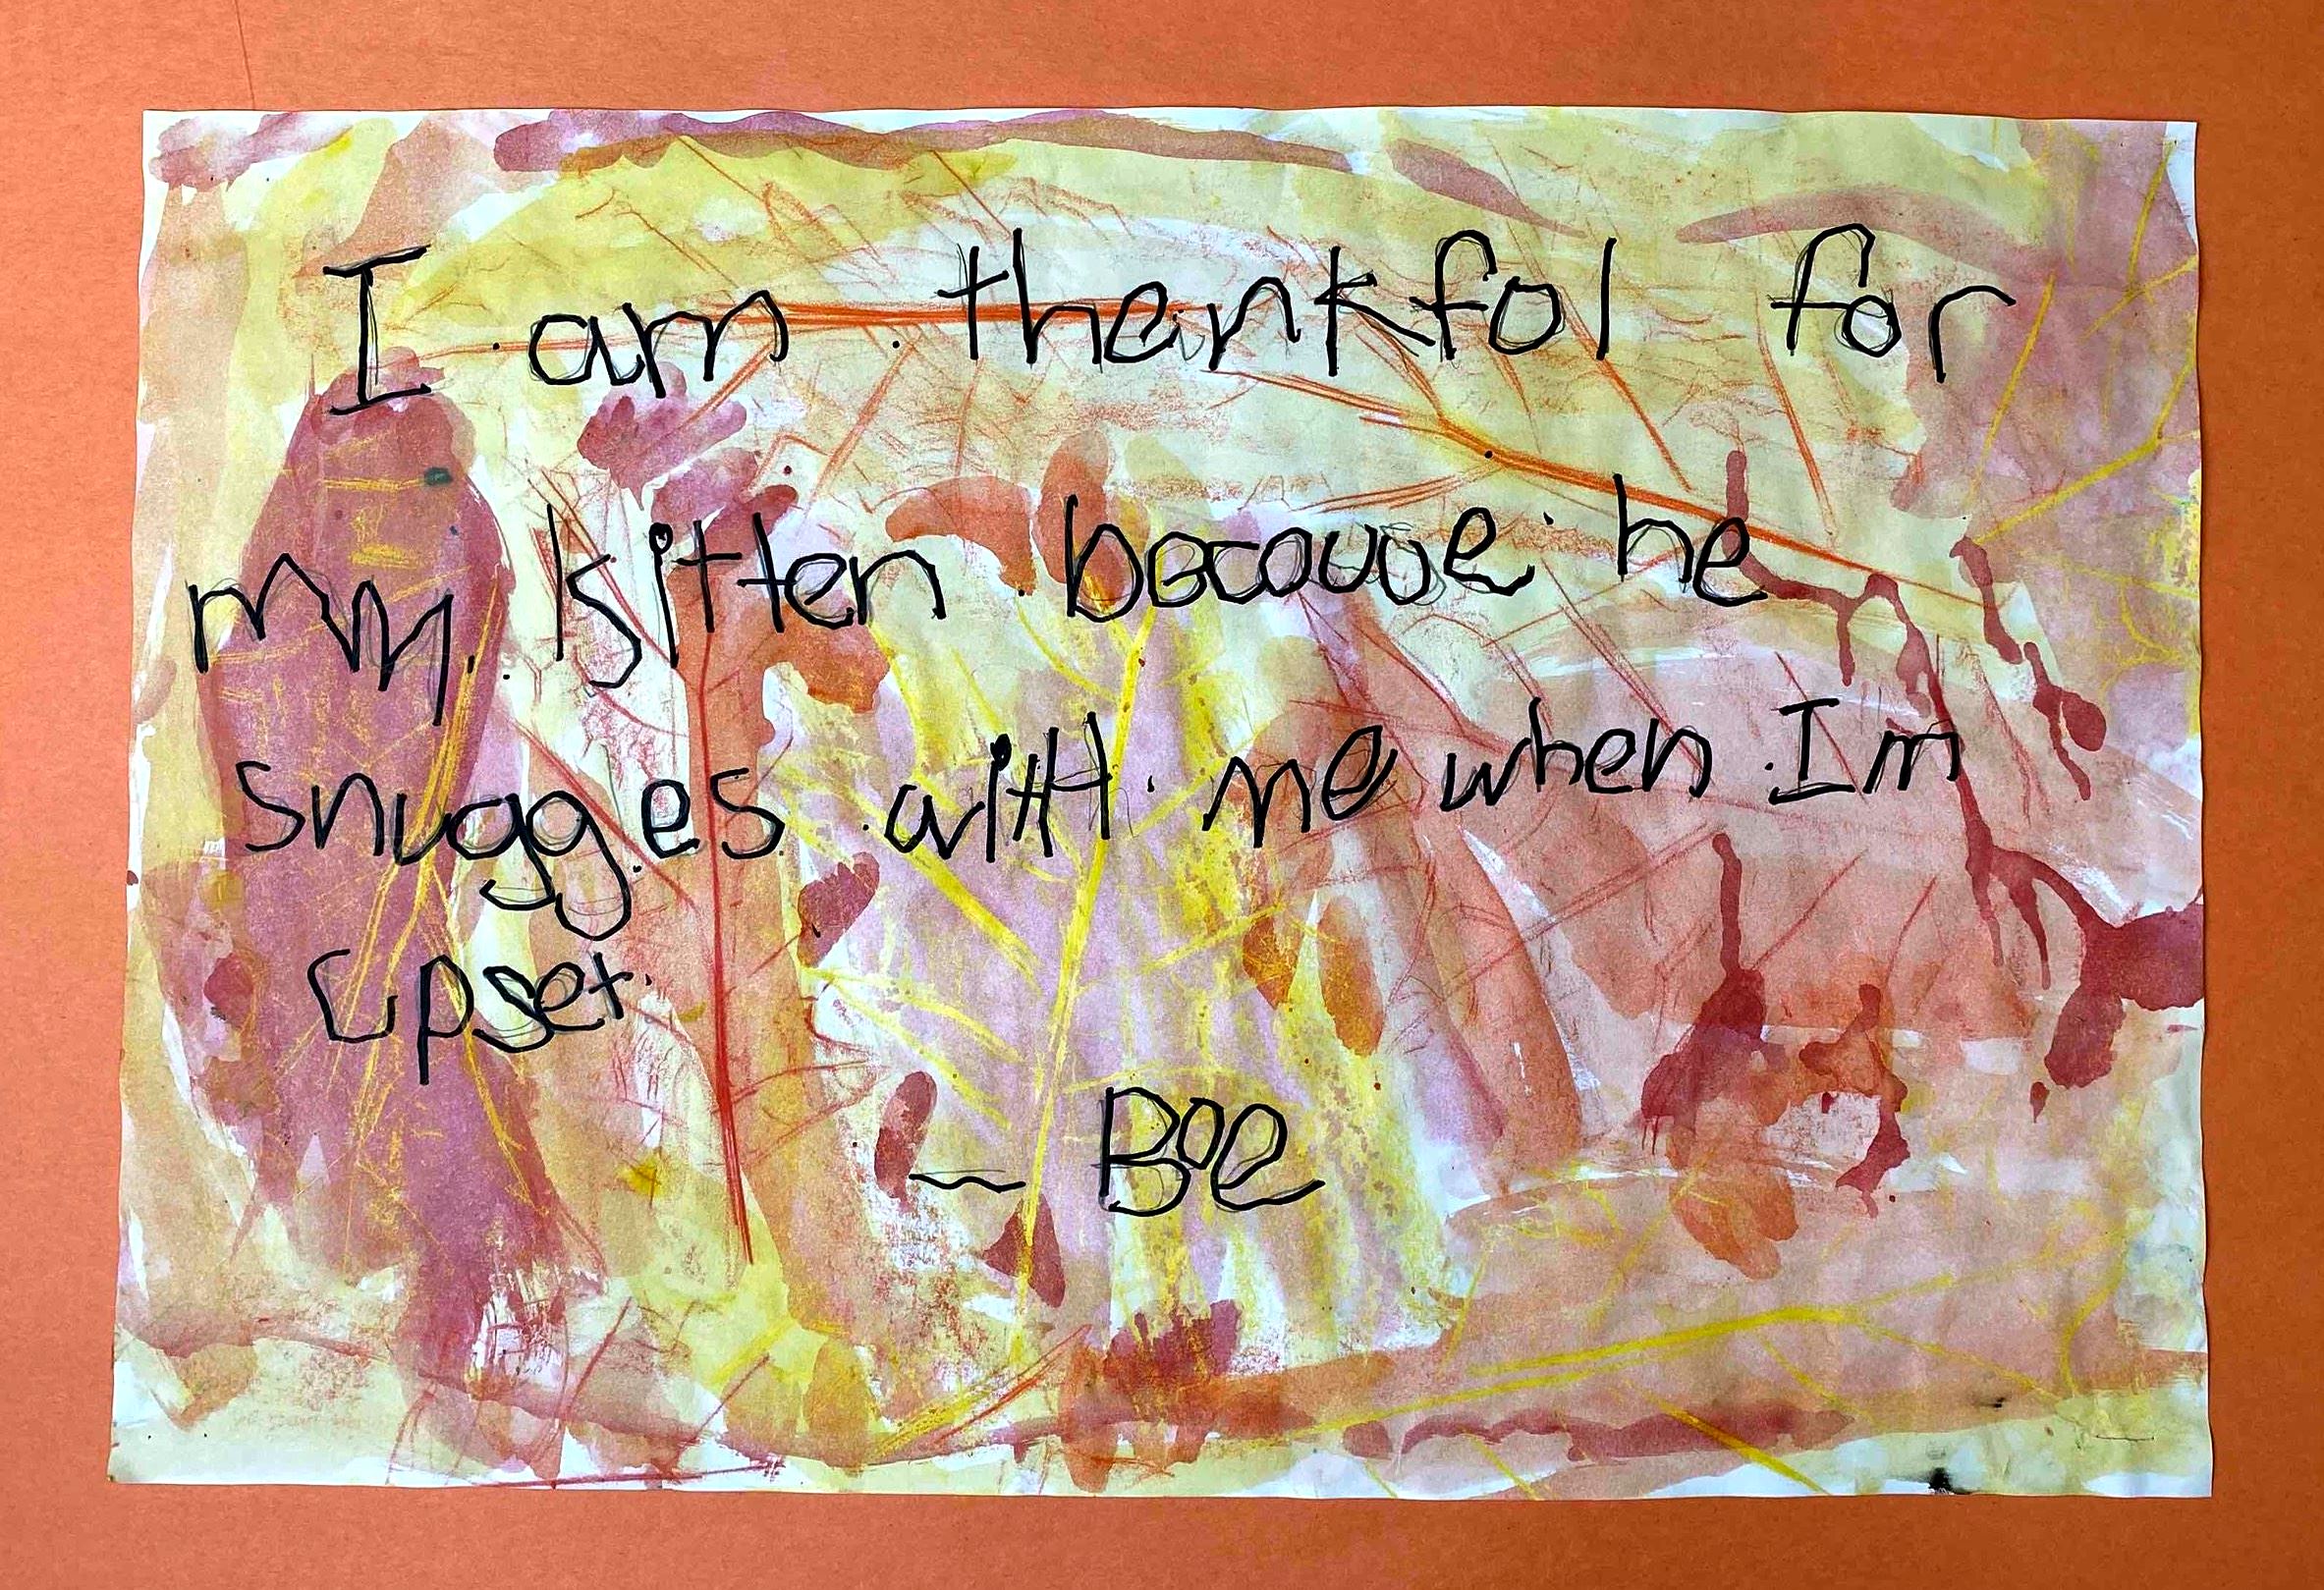 I am thenkfol for
my kitten becouoe he
snugges with me when Im
upset.
— Boe